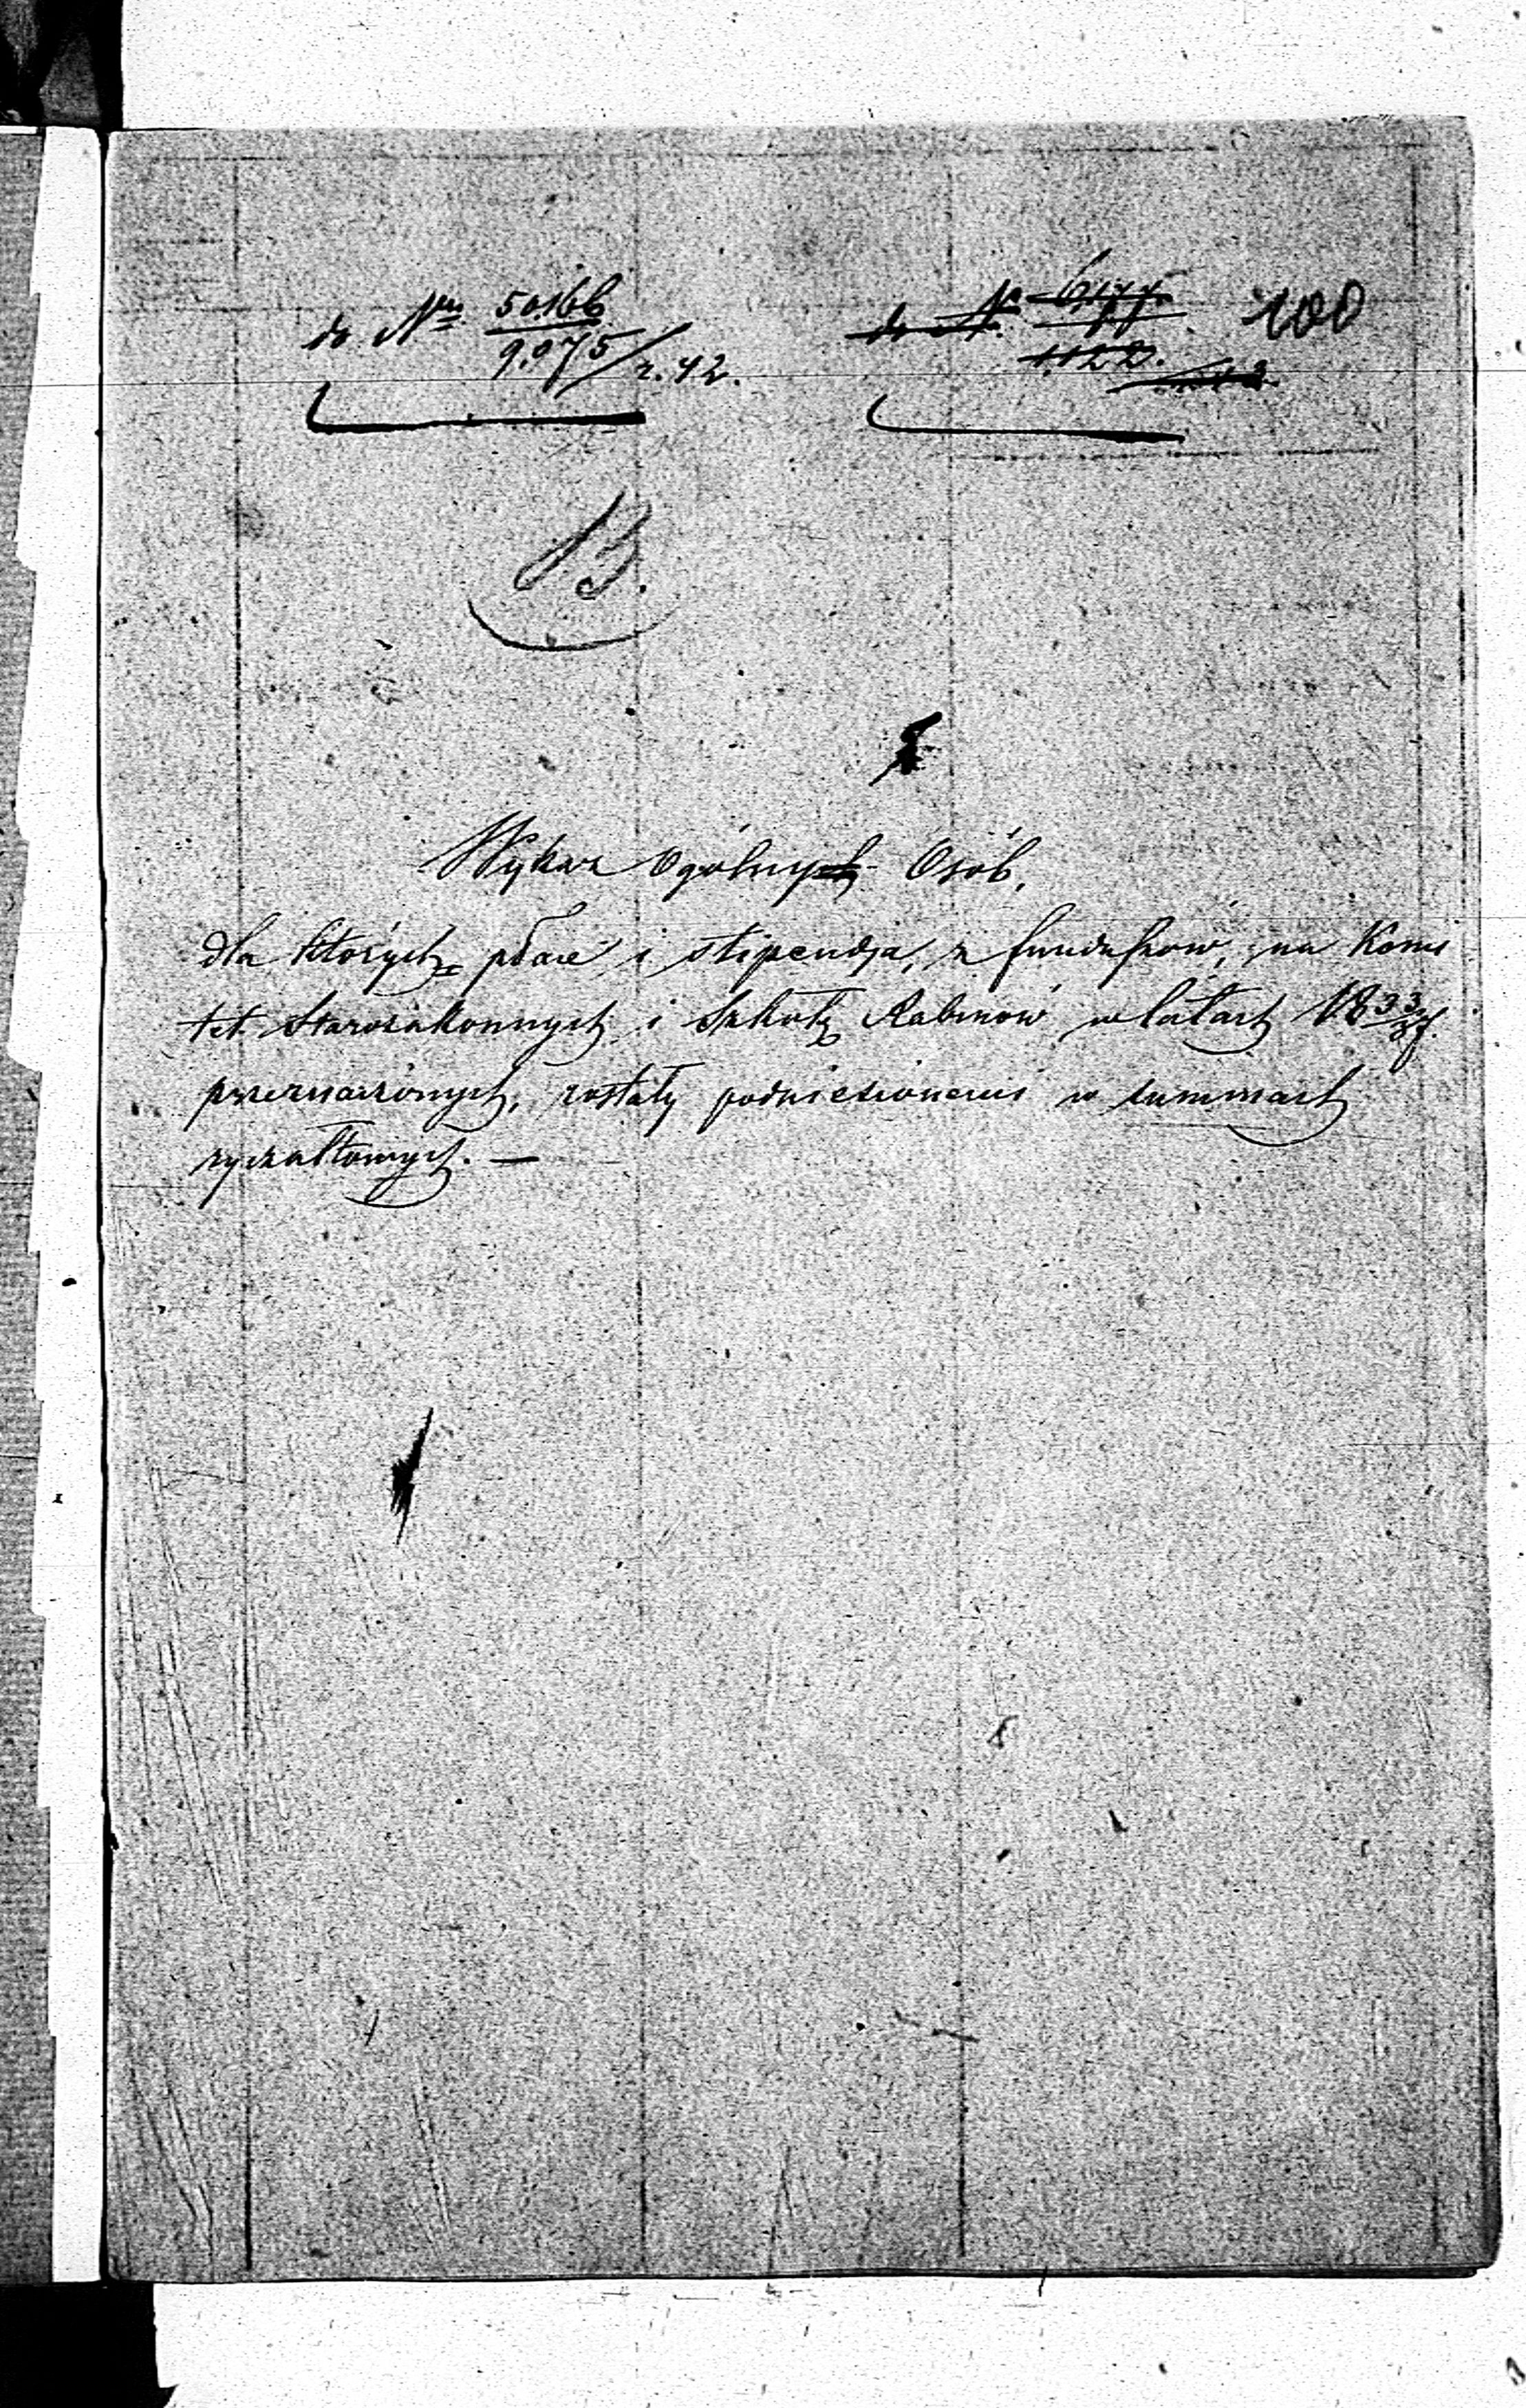 do Nru 50166/9.075/r. 42.
do N. 6177/1122. 100
B.
Wykaz Ogólny Osób,
dla których płace i stipendja, z funduszow, na Komi
tet Starozakonnych i Szkołę Rabinow w latach 1833/34
przeznaczonych, zostały podniesionemi w summach
ryczałtowych. —